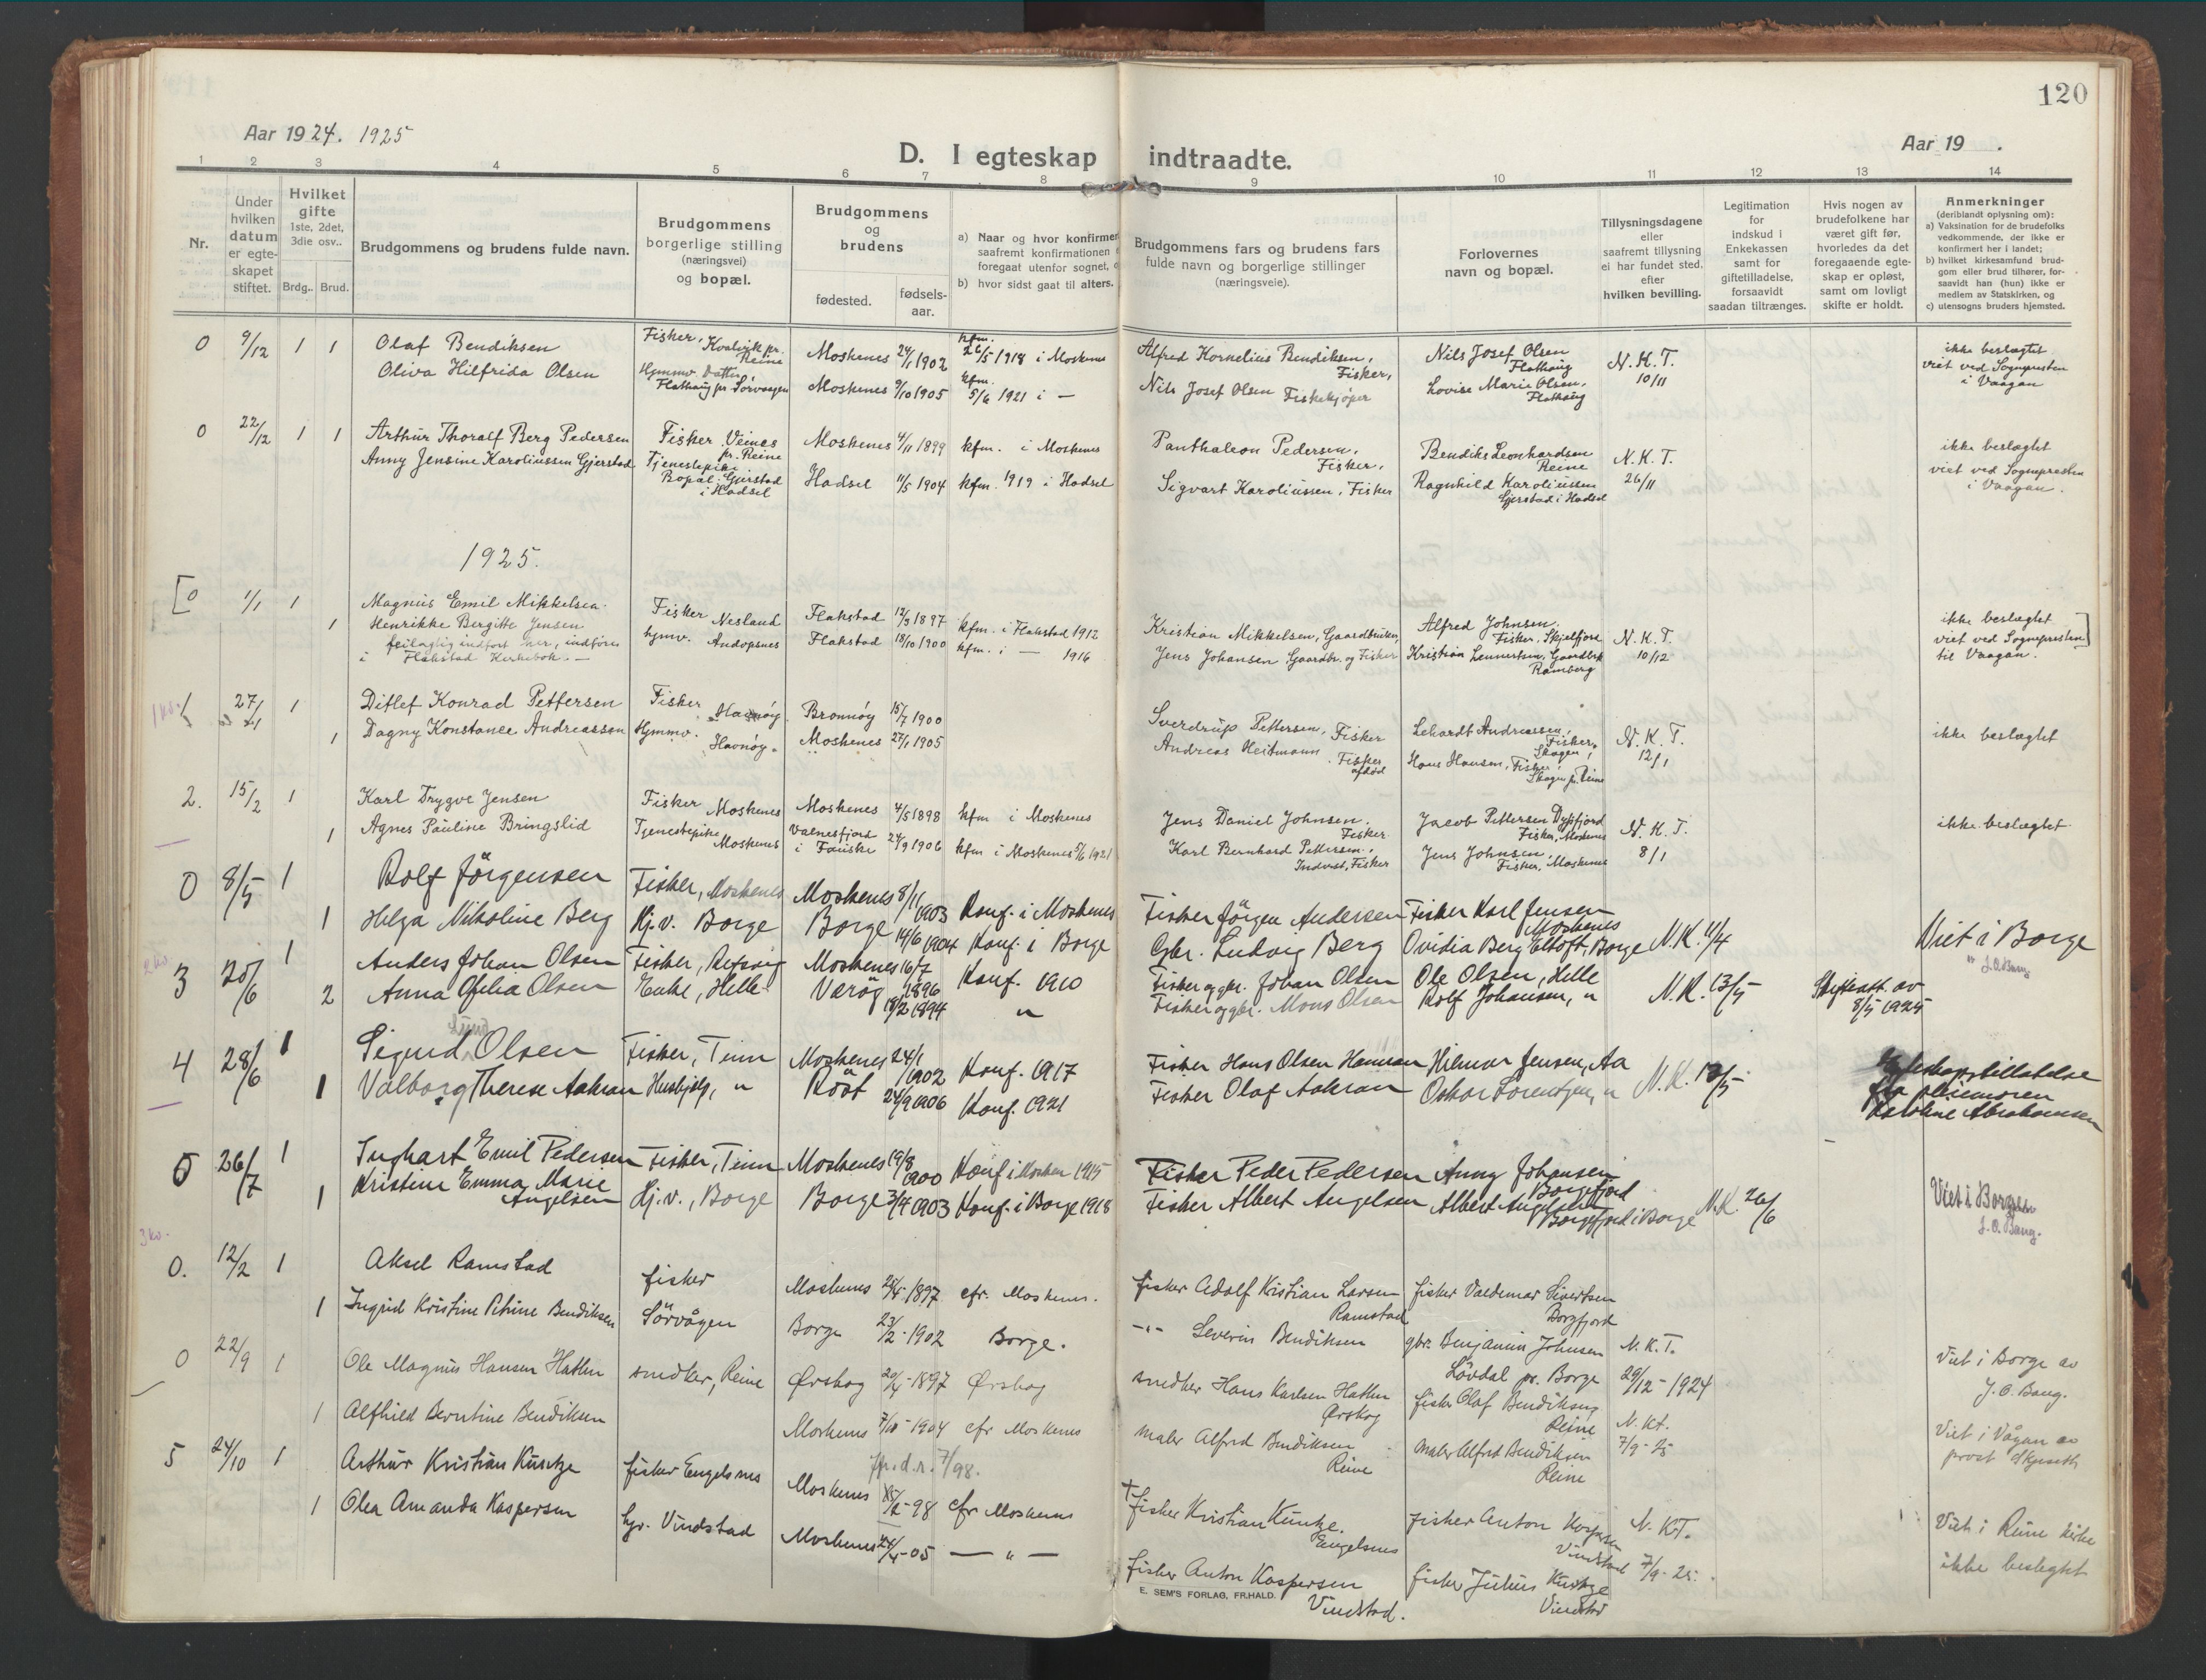 120
Aar 1924. 1925
D. I egteskap indtraadte.
Aar 19 .
1 2 3 4 5 6 7 8 9 10 11 12 13 14
Nr.
Under hvilken datum er egte-skapet stiftet.
Hvilket gifte
1ste, 2det, 3die osv..
Brdg.. Brud.
Brudgommens og brudens fulde navn.
Brudgommens borgerlige stilling (næringsvei) og bopæl.
Brudgommens og brudens
fødested.
fødsels-aar.
a) Naar og hvor konfirmer
saafremt konfirmationen
foregaat utenfor sognet,
b) hvor sidst gaat til alters.
Brudgommens fars og brudens fars
fulde navn og borgerlige stillinger
(næringsveie).
Forlovernes
navn og bopæl.
Tillysningsdagene
eller
saafremt tillysning
ei har fundet sted.
efter
hvilken bevilling.
Legitimation
for
indskud i
Enkekassen
samt for
giftetilladelse,
forsaavidt
saadan tiltrænges.
Hvis nogen av
brudefolkene har
været gift før,
hvorledes da det
foregaaende egte-
skap er opløst,
samt om lovligt
skifte er holdt.
Anmerkninger
(deriblandt oplysning om):
a) Vaksination for de brudefolks
vedkommende, der ikke er
konfirmert her i landet;
b) hvilket kirkesamfund brud-
gom eller brud tilhører, for-
saavidt han (hun) ikke er
medlem av Statskirken, og
c) utensogns bruders hjemsted.
0 9/12 1 1 Olaf Bendiksen Fisker, Kvalvik pr. Reine Moskenes 24/1 1902 kfm. 26/5 1918 i Moskenes Alfred Kornelius Bendiksen, Fisker, Nils Josef Olsen Flathaug N.K.T. 10/11 ikke beslegtet
Oliva Hilfrida Olsen Hjemmv. Datter Flathaug pr Sørvaagen Moskenes 9/10 1905 kfm. 5/6 1921 i — Nils Josef Olsen Fiskekjøper Lovise Marie Olsen, Flathaug viet ved Sognepresten i Vaagan
0 22/12 1 1 Arthur Thoralf Berg Pedersen Fisker Veines pr. Reine Moskenes 4/11 1899 kfm. i Moskenes Panthaleon Pedersen, Fisker, Bendiks Leonhardsen Reine N.K.T. 26/11 ikke beslegtet
Anny Jensine Karoliussen Gjerstad Tjenestepike Bopæl: Gjerstad i Hadsel Hadsel 11/5 1904 kfm. 1919 i Hadsel Sigvart Karoliussen, Fisker Ragnhild Karoliussen Gjerstad i Hadsel viet ved Sognepresten i Vaagan.
1925.
[0 1/1 1 Magnus Emil Mikkelsen Fisker Nesland Flakstad 12/3 1897 kfm. i Flakstad 1912 Kristian Mikkelsen, Gaardbruker, Alfred Johnsen, Fisker, Skjelfjord N.K.T. 10/12 ikke beslegtet
1 Henrikke Bergitte Jensen hjmv. Andopsnes Flakstad 18/10 1900 kfm. i — 1916 Jens Johansen Gaardbr. og Fisker Kristian Lennertsen, Gaardbrk Ramberg viet ved Sognepresten til Vaagan.]
feilagtig indført her, indføres
i Flakstad Kirkebok. —
1 kv. 1 27/1 1 Ditlef Konrad Pettersen Fisker Havnöy Brønnöy 15/7 1900 Sverdrup Pettersen, Fisker Lehardt Andreassen, Fisker, Skagen, N.K.T. 12/1 ikke beslegtet
1 Dagny Konstance Andreassen Hjemmv. Havnöy. Moskenes 27/1 1905 Andreas Heitmann, Fisker afdød Hans Hansen, Fisker, Skagen pr. Reine
2. 15/2 1 Karl Trygve Jensen Fisker Moskenes Moskenes 4/5 1898 kfm i Moskenes Jens Daniel Johnsen, Fisker Jacob Pettersen Dypfjord Fisker, Moskenes N.K.T. 8/1 ikke beslegtet
1 Agnes Pauline Bringslid Tjenestepike Moskenes Valnesfjord i Fauske 24/9 1906 kfm i Moskenes 5/6 1921 Karl Bernhard Pettersen, Indvest, Fisker Jens Johnsen, Fisker, Moskenes
0 8/5 1 Rolf Jörgensen Fisker, Moskenes Moskenes 8/11 1903 Konf. i Moskenes Fisker Jörgen Andersen Fisker Karl Jensen Moskenes N.K. 11/4 Viet i Borge
1 Helga Nikoline Berg Hj.v. Borge Borge 14/6 1904 Konf. i Borge Gbr. Ludvig Berg Ovidia Berg Eltoft, Borge av J.O. Bang
2 kv. 3 20/6 1 Anders Johan Olsen Fisker, Refsvig Moskenes 16/7 1896 Konf. 1910 Fisker og gbr. Johan Olsen Ole Olsen, Helle N.K. 13/5 Skifteatt. av 8/5 1925
2 Anna Ofelia Olsen Enke, Helle Værøy 19/2 1894 " Fisker og gbr. Mons Olsen Rolf Johansen, "
4 28/6 1 Sigurd Olsen Fisker, Tinn Moskenes 24/1 1902 Konf. 1917 Fisker Hans Olsen Hamran Hilmar Jensen, Aa N.K. 13/5 Egteskapstillatelse
1 Valborg Therese Aakran Hushjelp, " Röst 24/9 1906 Konf. 1921 Fisker Olaf Aakran Oskar Lorentzen, " fra pleiemoren Karoline Abrahamsen
5 26/7 1 Inghart Emil Pedersen Fisker, Tinn Moskenes 19/8 1900 Konf i Mosken 1915 Fisker Peder Pedersen Anny Johansen Borgefjord N.K. 26/6 Viet i Borge
1 Kristine Emma Marie Angelsen Hj.v., Borge Borge 3/4 1903 Konf. i Borge 1918 Fisker Albert Angelsen Albert Angelsen Borgefjord i Borge J.O. Bang.
3 kv.
0. 12/2 1 Aksel Ramstad fisker Moskenes 28/4 1897 cfr. Moskenes. fisker Adolf Kristian Larsen Ramstad fisker Valdemar Sivertsen Borgfjord
1 Ingrid Kristine Petrine Bendiksen Sörvågen Borge 23/2 - 1902 Borge. -"- Severin Bendiksen gbr. Benjamin Johnsen Lövdal pr. Borge N.K.T. 29/12 - 1924 Viet i Borge av J.O. Bang.
0 22/9 1 Ole Magnus Hansen Hatlen snedker, Reine Ørskog 20/4 - 1897 Ørskog snedker Hans Karlsen Hatlen Ørskog fisker Olaf Bendiksen Reine N.Kt. 7/9 - 25 Viet i Vågan av
1 Alfhild Berntine Bendiksen Moskenes 7/10 - 1904 cfr Moskenes maler Alfred Bendiksen Reine maler Alfred Bendiksen Reine prost Skjeseth
5 24/10 1 Arthur Kristian Kuntze fisker Engelsnes Moskenes - 98 cfr Moskenes † fisker Kristian Kuntze. Engelsnes fisker Anton Kaspersen Vindstad N.KT. 7/9 - 25. Viet i Reine kirke
fp.d.r. 7/98.
1 Olea Amanda Kaspersen hjv. Vindstad Moskenes 24/4 - 05 — " — fisker Anton Kaspersen Vindstad. fisker Julius Kuntze Vindstad ikke beslegtet
E. SEM'S FORLAG, FR.HALD.